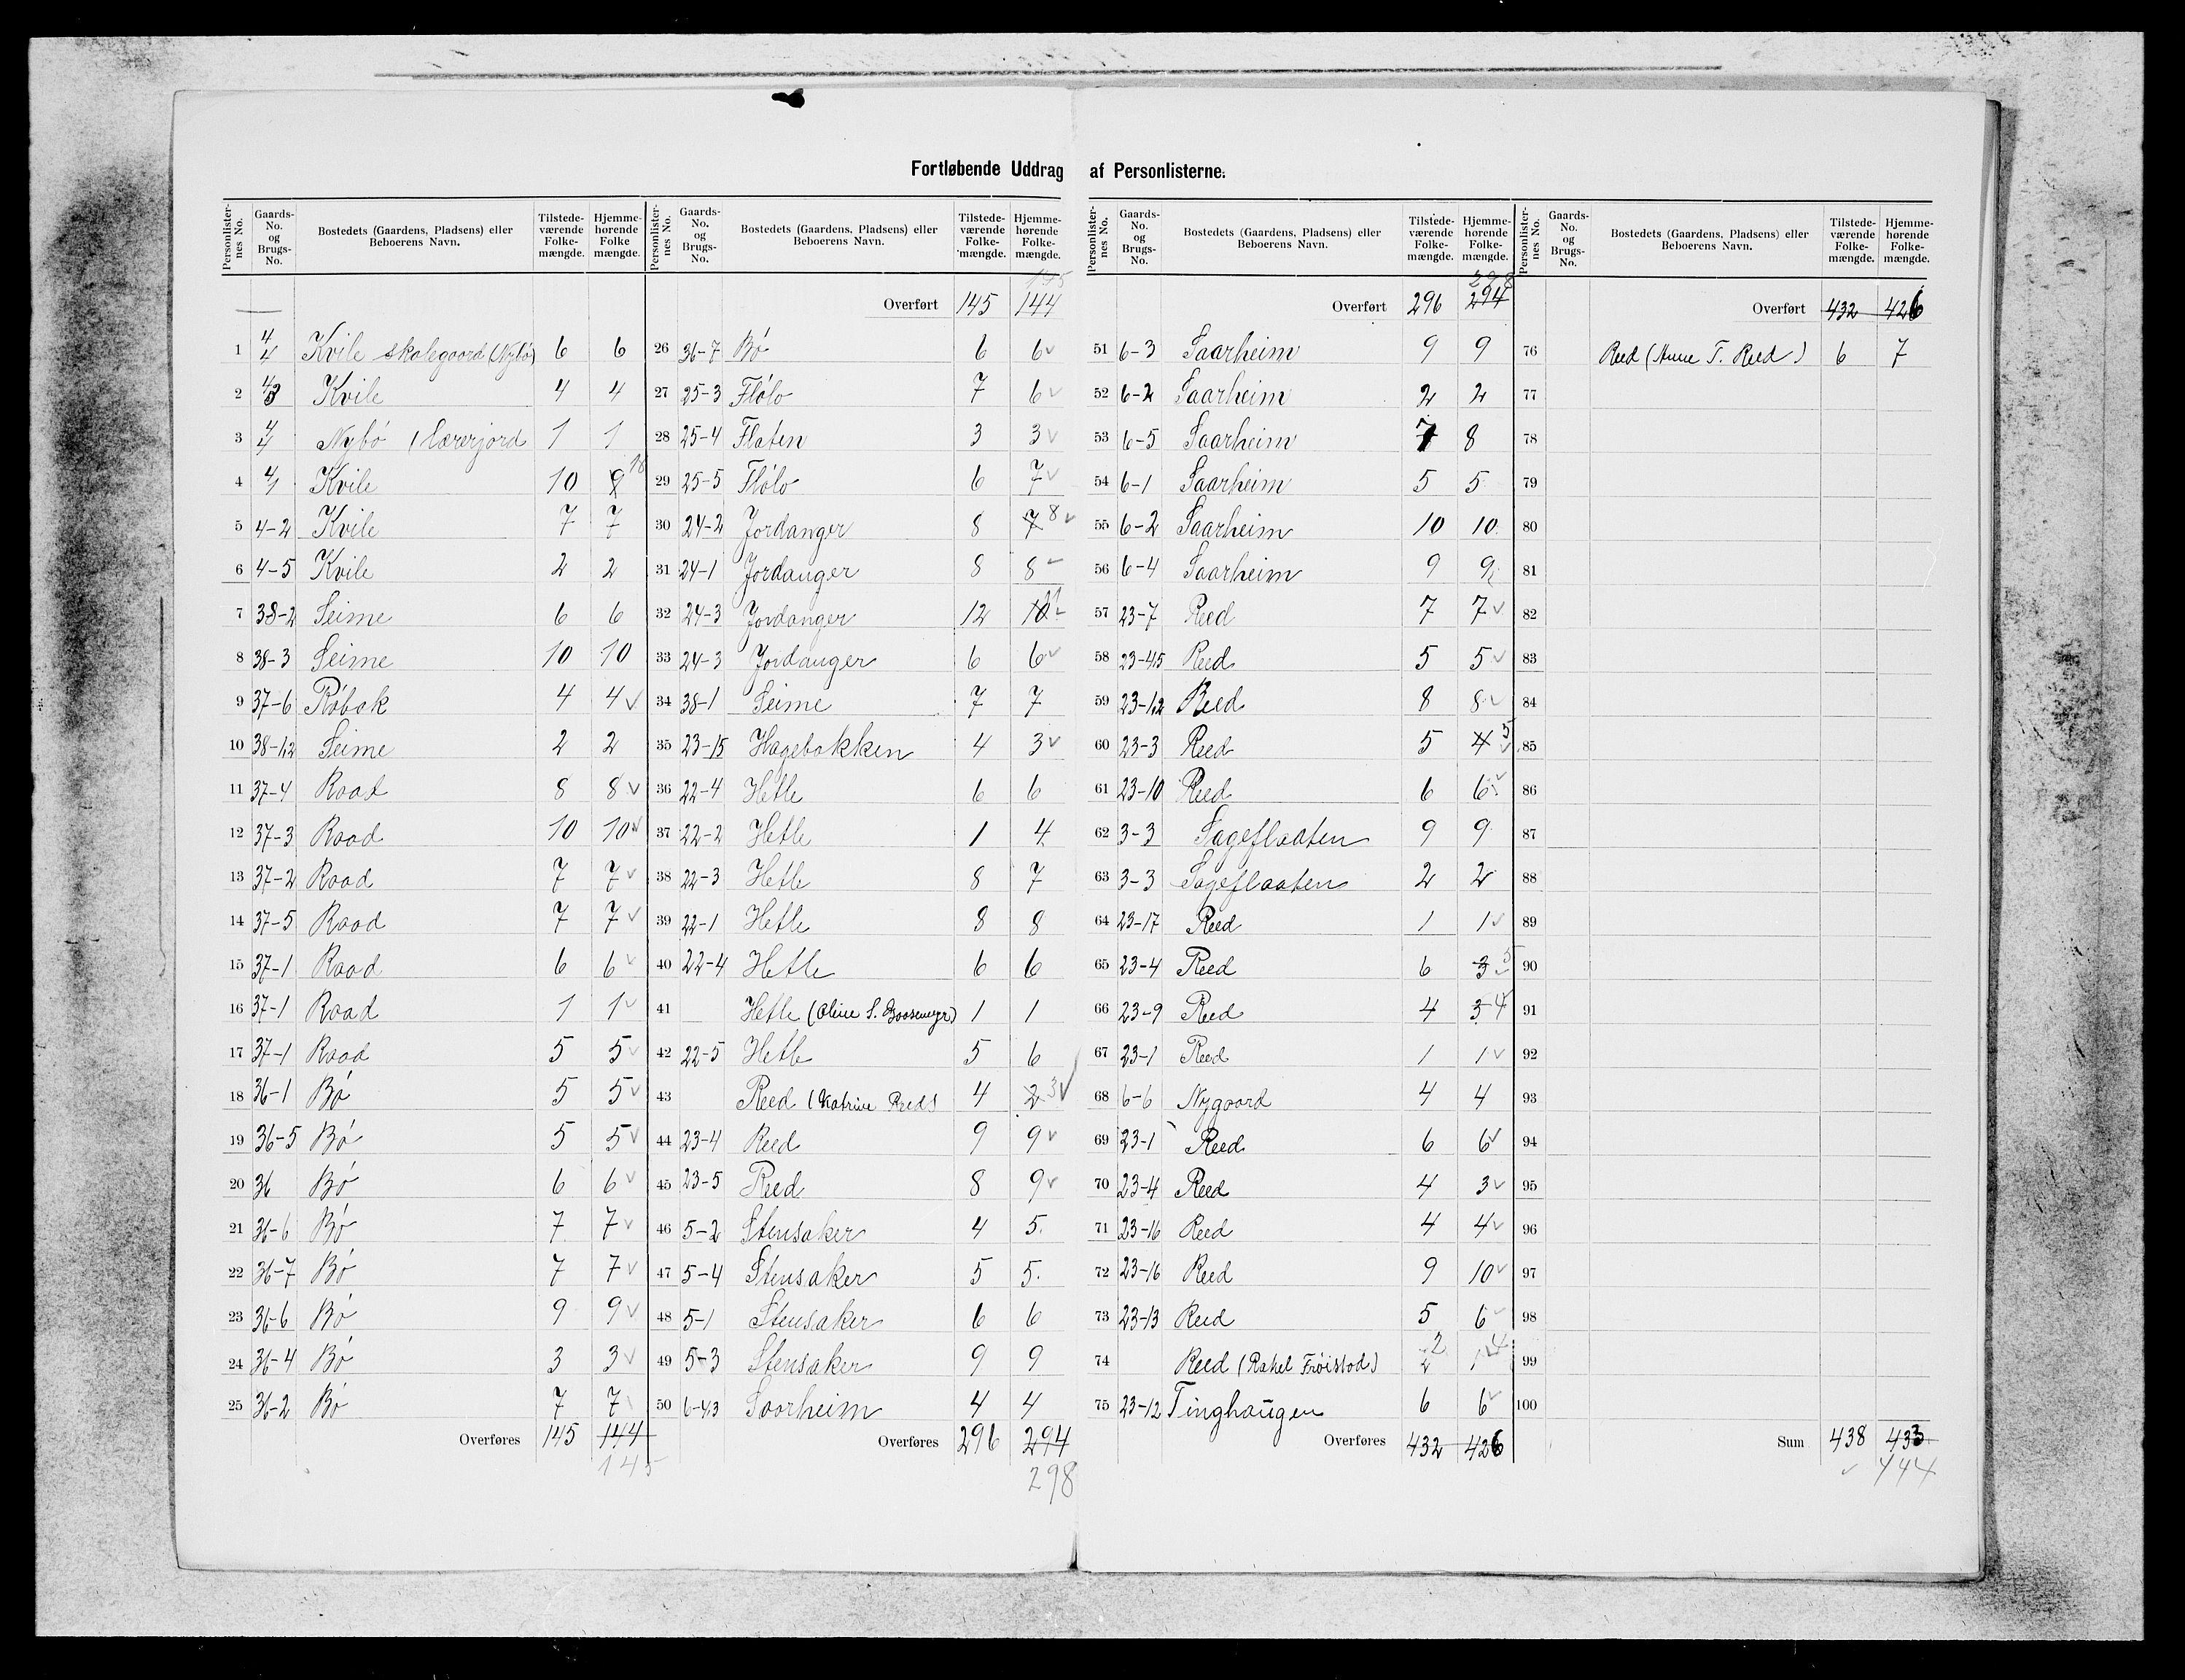 Fortløbende Uddrag af Personlisterne.
Personlister-nes No. Gaards-No. og Brugs-No. Bostedets (Gaardens, Pladsens) eller Beboerens Navn. Tilstede-værende Folke-mængde. Hjemme-hørende Folke mængde.
1 4/4 Kvile skolegaard (Nybø) 6 6
2 4/3 Kvile 4 4
3 4/4 Nybø (Lærerjord 1 1
4 4/1 Kvile 10 9 10
5 4-2 Kvile 7 7
6 4-5 Kvile 2 2
7 38-2 Seime 6 6
8 38-3 Seime 10 10
9 37-6 Røbak 4 4 ✓
10 38-1,2 Seime 2 2
11 37-4 Raad 8 8 ✓
12 37-3 Raad 10 10 ✓
13 37-2 Raad 7 7 ✓
14 37-5 Raad 7 7 ✓
15 37-1 Raad 6 6 ✓
16 37-1 Raad 1 1 ✓
17 37-1 Raad 5 5 ✓
18 36-1 Bø 5 5 ✓
19 36-5 Bø 5 5 ✓
20 36 Bø 6 6 ✓
21 36-6 Bø 7 7 ✓
22 36-7 Bø 7 7 ✓
23 36-6 Bø 9 9 ✓
24 36-4 Bø 3 3 ✓
25 36-2 Bø 7 7
Overføres 145 144
145
Personlister-nes No. Gaards-No. og Brugs-No. Bostedets (Gaardens, Pladsens) eller Beboerens Navn. Tilstede-værende Folke-mængde. Hjemme-hørende Folke-mængde.
145
Overført 145 144
26 36-7 Bø 6 6 ✓
27 25-3 Flølo 7 6 ✓
28 25-4 Flaten 3 3 ✓
29 25-5 Flølo 6 7 ✓
30 24-2 Jordanger 8 7 8 ✓
31 24-1 Jordanger 8 8 ✓
32 24-3 Jordanger 12 10
33 24-3 Jordanger 6 6 ✓
34 38-1 Seime 7 7
35 23-15 Hagebakken 4 3 ✓
36 22-4 Hetle 6 6
37 22-2 Hetle 1 4
38 22-3 Hetle 8 7
39 22-1 Hetle 8 8
40 22-4 Hetle 6 6
41 Hetle (Oline S. ) 1 1
42 22-5 Hetle 5 6
43 Reed (Katrine Reeds 4 2 3 ✓
44 23-4 Reed 9 9 ✓
45 23-5 Reed 8 9 ✓
46 5-2 Stensaker 4 5
47 5-4 Stensaker 5 5
48 5-1 Stensaker 6 6
49 5-3 Stensaker 9 9
50 6-4,3 Saarheim 4 4
Overføres 296 294
298
Personlister-nes No. Gaards-No. og Brugs-No. Bostedets (Gaardens, Pladsens) eller Beboerens Navn. Tilstede-værende Folke-mængde. Hjemme-hørende Folke-mængde.
298
Overført 296 294
51 6-3 Saarheim 9 9
52 6-2 Saarheim 2 2
53 6-5 Saarheim 7 8
54 6-1 Saarheim 5 5
55 6-2 Saarheim 10 10
56 6-4 Saarheim 9 9
57 23-7 Reed 7 7 ✓
58 23-4,15 Reed 5 5 ✓
59 23-1,2 Reed 8 8 ✓
60 23-3 Reed 5 4 5 ✓
61 23-10 Reed 6 6 ✓
62 3-3 Sageflaaten 9 9
63 3-3 Sageflaaten 2 2
64 23-17 Reed 1 1 ✓
65 23-4 Reed 6 3 5
66 23-9 Reed 4 3 4
67 23-1 Reed 1 1 ✓
68 6-6 Nygaard 4 4
69 23-1 Reed 6 6 ✓
70 23-4 Reed 4 3 ✓
71 23-16 Reed 4 4 ✓
72 23-16 Reed 9 10 ✓
73 23-13 Reed 5 6 ✓
74 Reed (Rakel Frøistad) 2 2 1 4
75 23-12 Tinghaugen 6 6 ✓
Overføres 432 426
Personlister-nes No. Gaards-No. og Brugs-No. Bostedets (Gaardens, Pladsens) eller Beboerens Navn. Tilstede-værende Folke-mængde. Hjemme-hørende Folke-mængde.
Overført 432 426
76 Reed (Anne T. Reed) 6 7
77
78
79
80
81
82
83
84
85
86
87
88
89
90
91
92
93
94
95
96
97
98
99
100
Sum 438 433
✓ 444